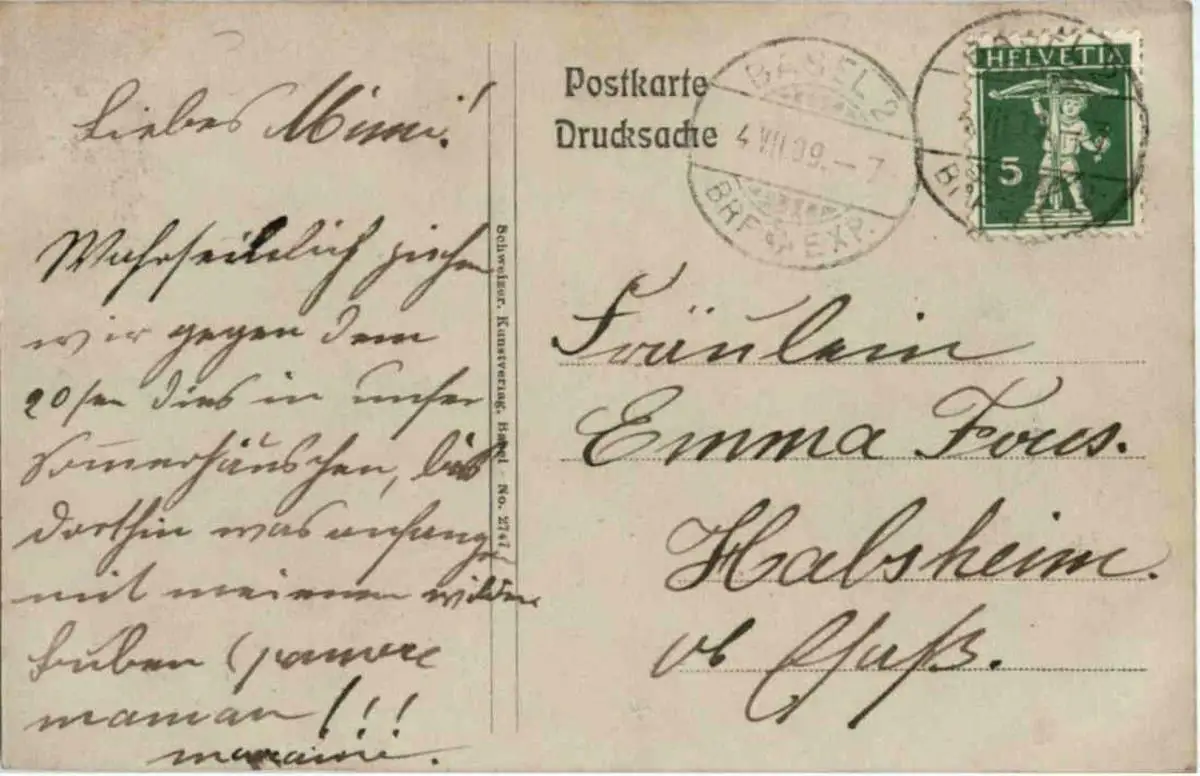 Liebes Mimi!
Wahrscheinlich ziehen
wir gegen dem
20ten dies in unser
Sommerhäuschen, bis
dorthin was anfangen
mit meinen wilden
Buben (pauvre
maman!!!
marraine.
Schweizer. Kunstverlag, Basel No. 2747
Postkarte
Drucksache
BASEL 2
4 VII 09. – 7
BRF. EXP.
HELVETIA
5
Fräulein
Emma Fous.
Habsheim.
Ob Elsaß.